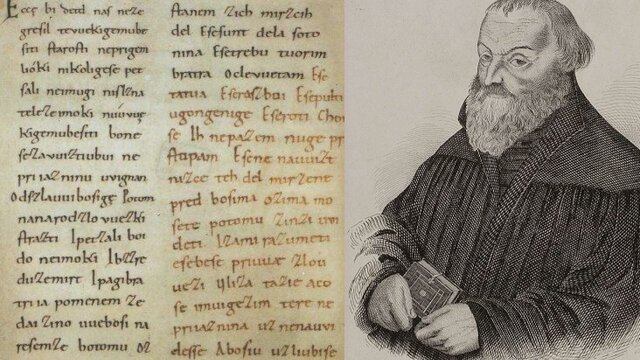 Eccę bi detd naſ neze
greſil tevuekigemube
ſiti ſtaroſti neprigem
lióki nikoligeſe pet
ſali neimugi niſlzna
teleze imoki nuúvue
kigemubeſiti bone
ſezavuiztiubui ne
priiazninu uvignan
Odſzlauuiboſige Potom
nanarodſzlovuezki
ſtrazti Ipetzali boi
do neimoki Ibzzre
duzemirt Ipagibra
triia pomenem ze
dai zino uuebosi na
reſemze botomu Oz
ſtanem zich mirzcih
del Eſeſunt dela ſoto
nina Eſetrebu tuorim
bratra Oclevuetam Eſe
tatua Eſerazboi Eſepulti
ugongenige Eſeroti Choi
ſe Ih nepazem nuge pr
ſtupam Eſene nauuizt
nizce teh del mirzene
pred bosima ozima mo
ſete potomu zinzi uvi
deti Izami razumeti
eſebeſe priuuae zlou
uezi Iliza tazie aco
ſe imuigezim tere ne
priiaznina uznenauvi
deſſe Abosiu uzliubiſe